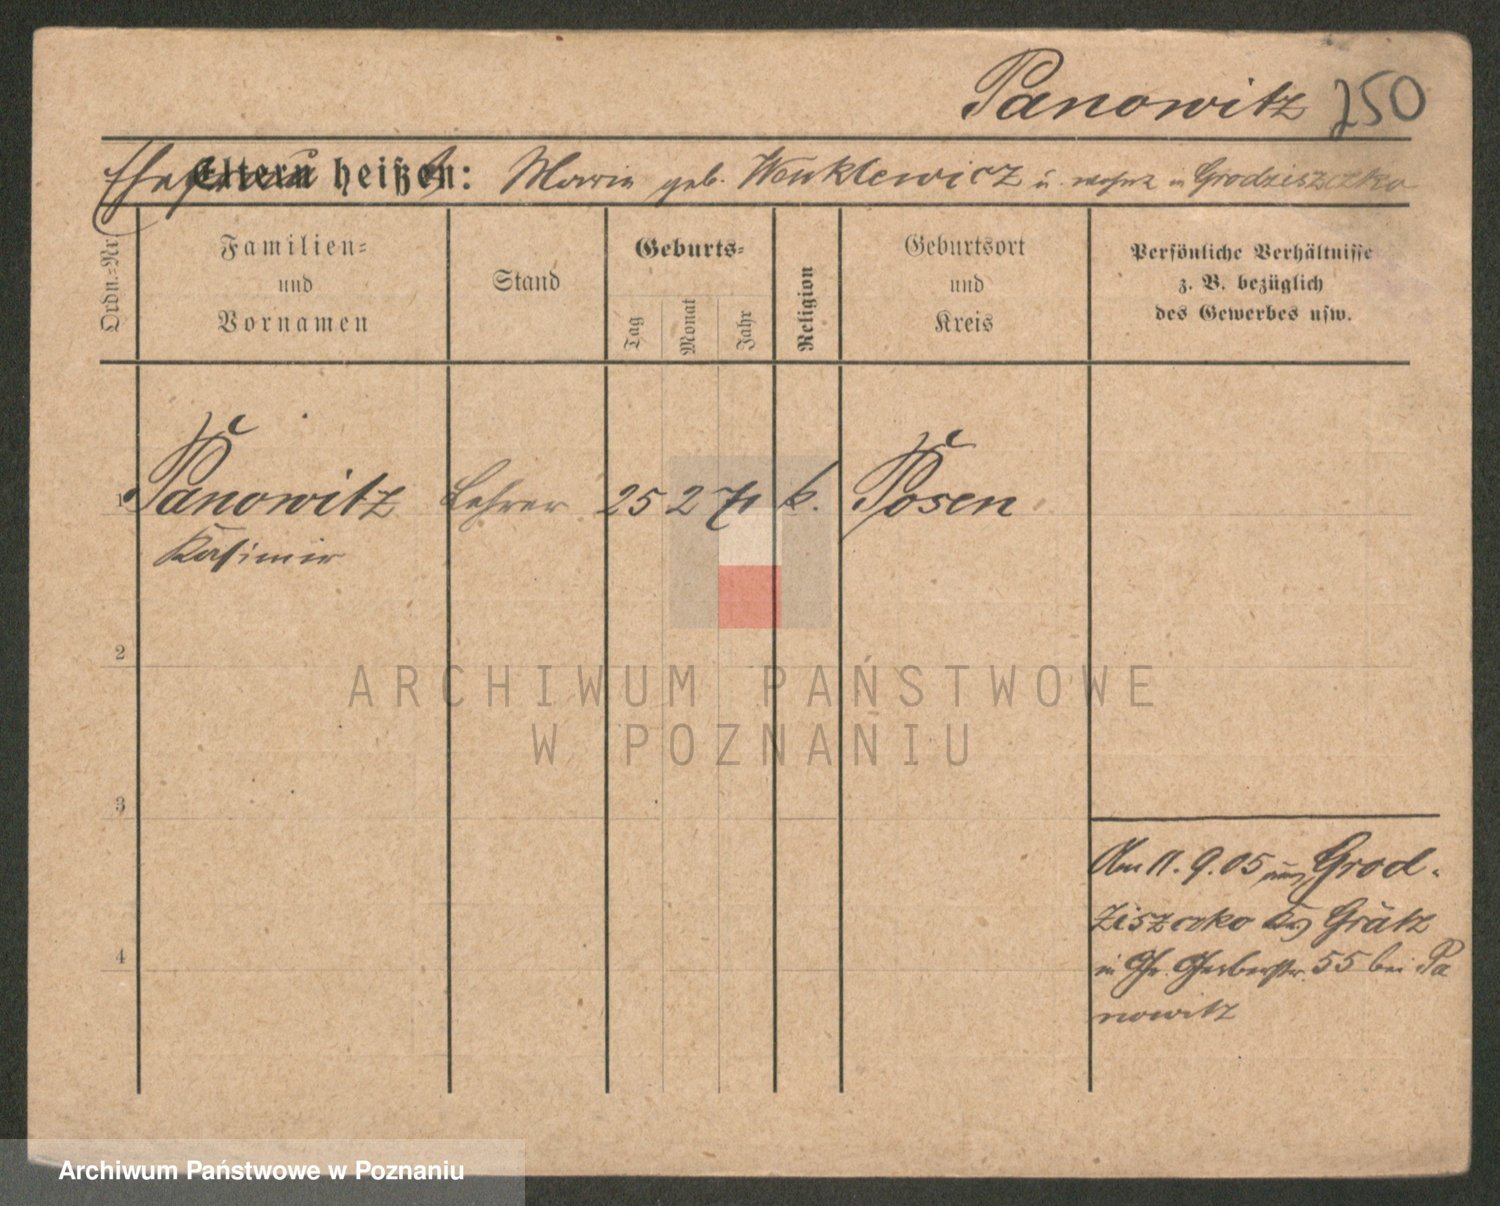 Panowitz 250
Ehefrau Eltern heißen: Maria geb. Wenklewicz u. wohnt in Grodziszczko
Ordn.=Nr.
Familien=
und
Vornamen
Stand
Geburts=
Tag
Monat
Jahr
Religion
Geburtsort
und
Kreis
Persönliche Verhältnisse
z. B. bezüglich
des Gewerbes usw.
1 Panowitz Lehrer 25 2 71 k. Posen
Kasimir
2
ARCHIWUM PAŃSTWOWE
W POZNANIU
3
Am 11.9.05 aus Grod-
ziszczko Krs Grätz
in Gr. Gerberstr. 55 bei Pa
nowitz
4
Archiwum Państwowe w Poznaniu